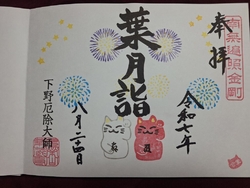 奉拝
令和七年
葉月詣
八月二十四日
下野厄除大師